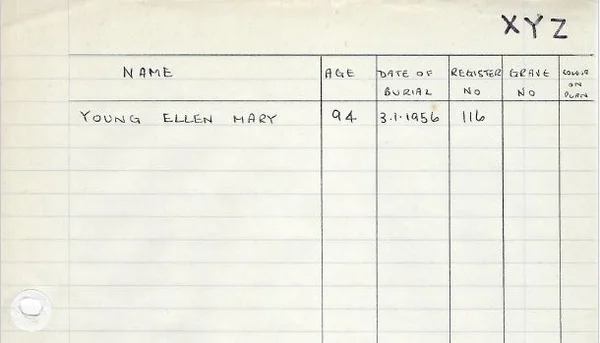 XYZ
NAME AGE DATE OF BURIAL REGISTER NO GRAVE NO COLOUR ON PLAN
YOUNG ELLEN MARY 94 3.1.1956 116